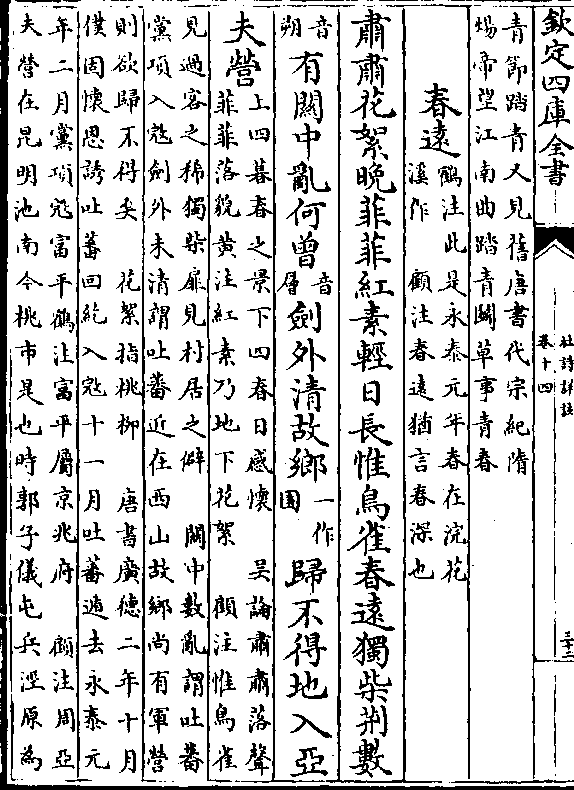 欽定四庫全書
杜詩詳註
卷十四
三十二
青節踏青又見舊唐書代宗紀隋
煬帝望江南曲踏青鬭草事青春
春遠 鶴注此是永泰元年春在浣花
溪作 顧注春遠猶言春深也
肅肅花絮晚菲菲紅素輕日長惟鳥雀春遠獨柴荊數
音朔有關中亂何曾音層劍外清故鄉一作園歸不得地入亞
夫營 上四暮春之景下四春日感懷 吳論肅肅落聲
菲菲落貌黄注紅素乃地下花絮 顧注惟鳥雀
見過客之稀獨柴扉見村居之僻 關中數亂謂吐蕃
黨項入寇劍外未清謂吐蕃近在西山故鄉尚有軍營
則欲歸不得矣 花絮指桃柳 唐書廣德二年十月
僕固懷恩誘吐蕃回紇入寇十一月吐蕃遁去永泰元
年二月黨項寇富平鶴注富平屬京兆府 顧注周亞
夫營在昆明池南今桃市是也時郭子儀屯兵涇原為